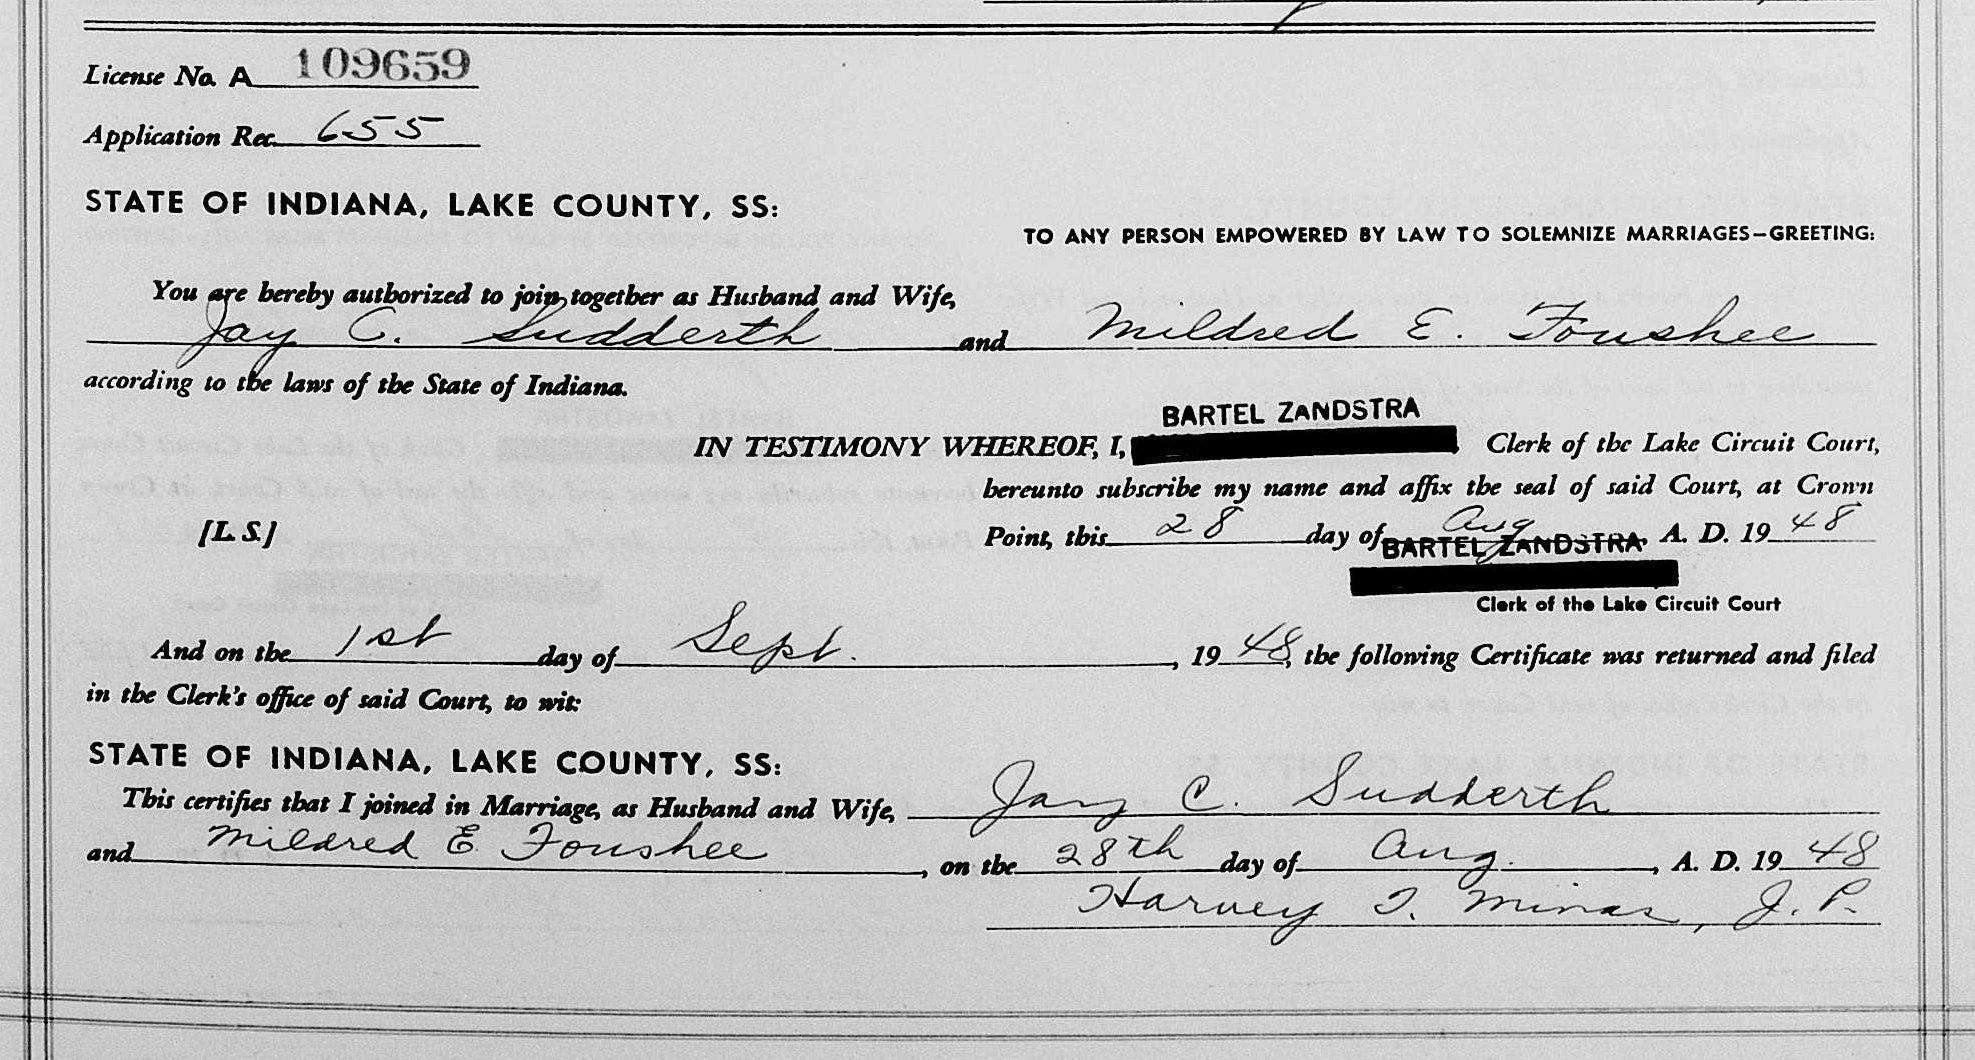 License No. A 109659
Application Rec. 655
STATE OF INDIANA, LAKE COUNTY, SS:
TO ANY PERSON EMPOWERED BY LAW TO SOLEMNIZE MARRIAGES—GREETING:
You are hereby authorized to join together as Husband and Wife,
Jay C. Sudderth and Mildred E. Foushee
according to the laws of the State of Indiana.
BARTEL ZANDSTRA
IN TESTIMONY WHEREOF, I, Clerk of the Lake Circuit Court,
hereunto subscribe my name and affix the seal of said Court, at Crown
[L. S.] Point, this 28 day of Aug, A. D. 19 48
BARTEL ZANDSTRA
Clerk of the Lake Circuit Court
And on the 1st day of Sept. , 19 48, the following Certificate was returned and filed
in the Clerk's office of said Court, to wit:
STATE OF INDIANA, LAKE COUNTY, SS:
This certifies that I joined in Marriage, as Husband and Wife, Jay C. Sudderth
and Mildred E Foushee , on the 28th day of Aug. , A. D. 19 48
Harvey T. Minas, J. P.